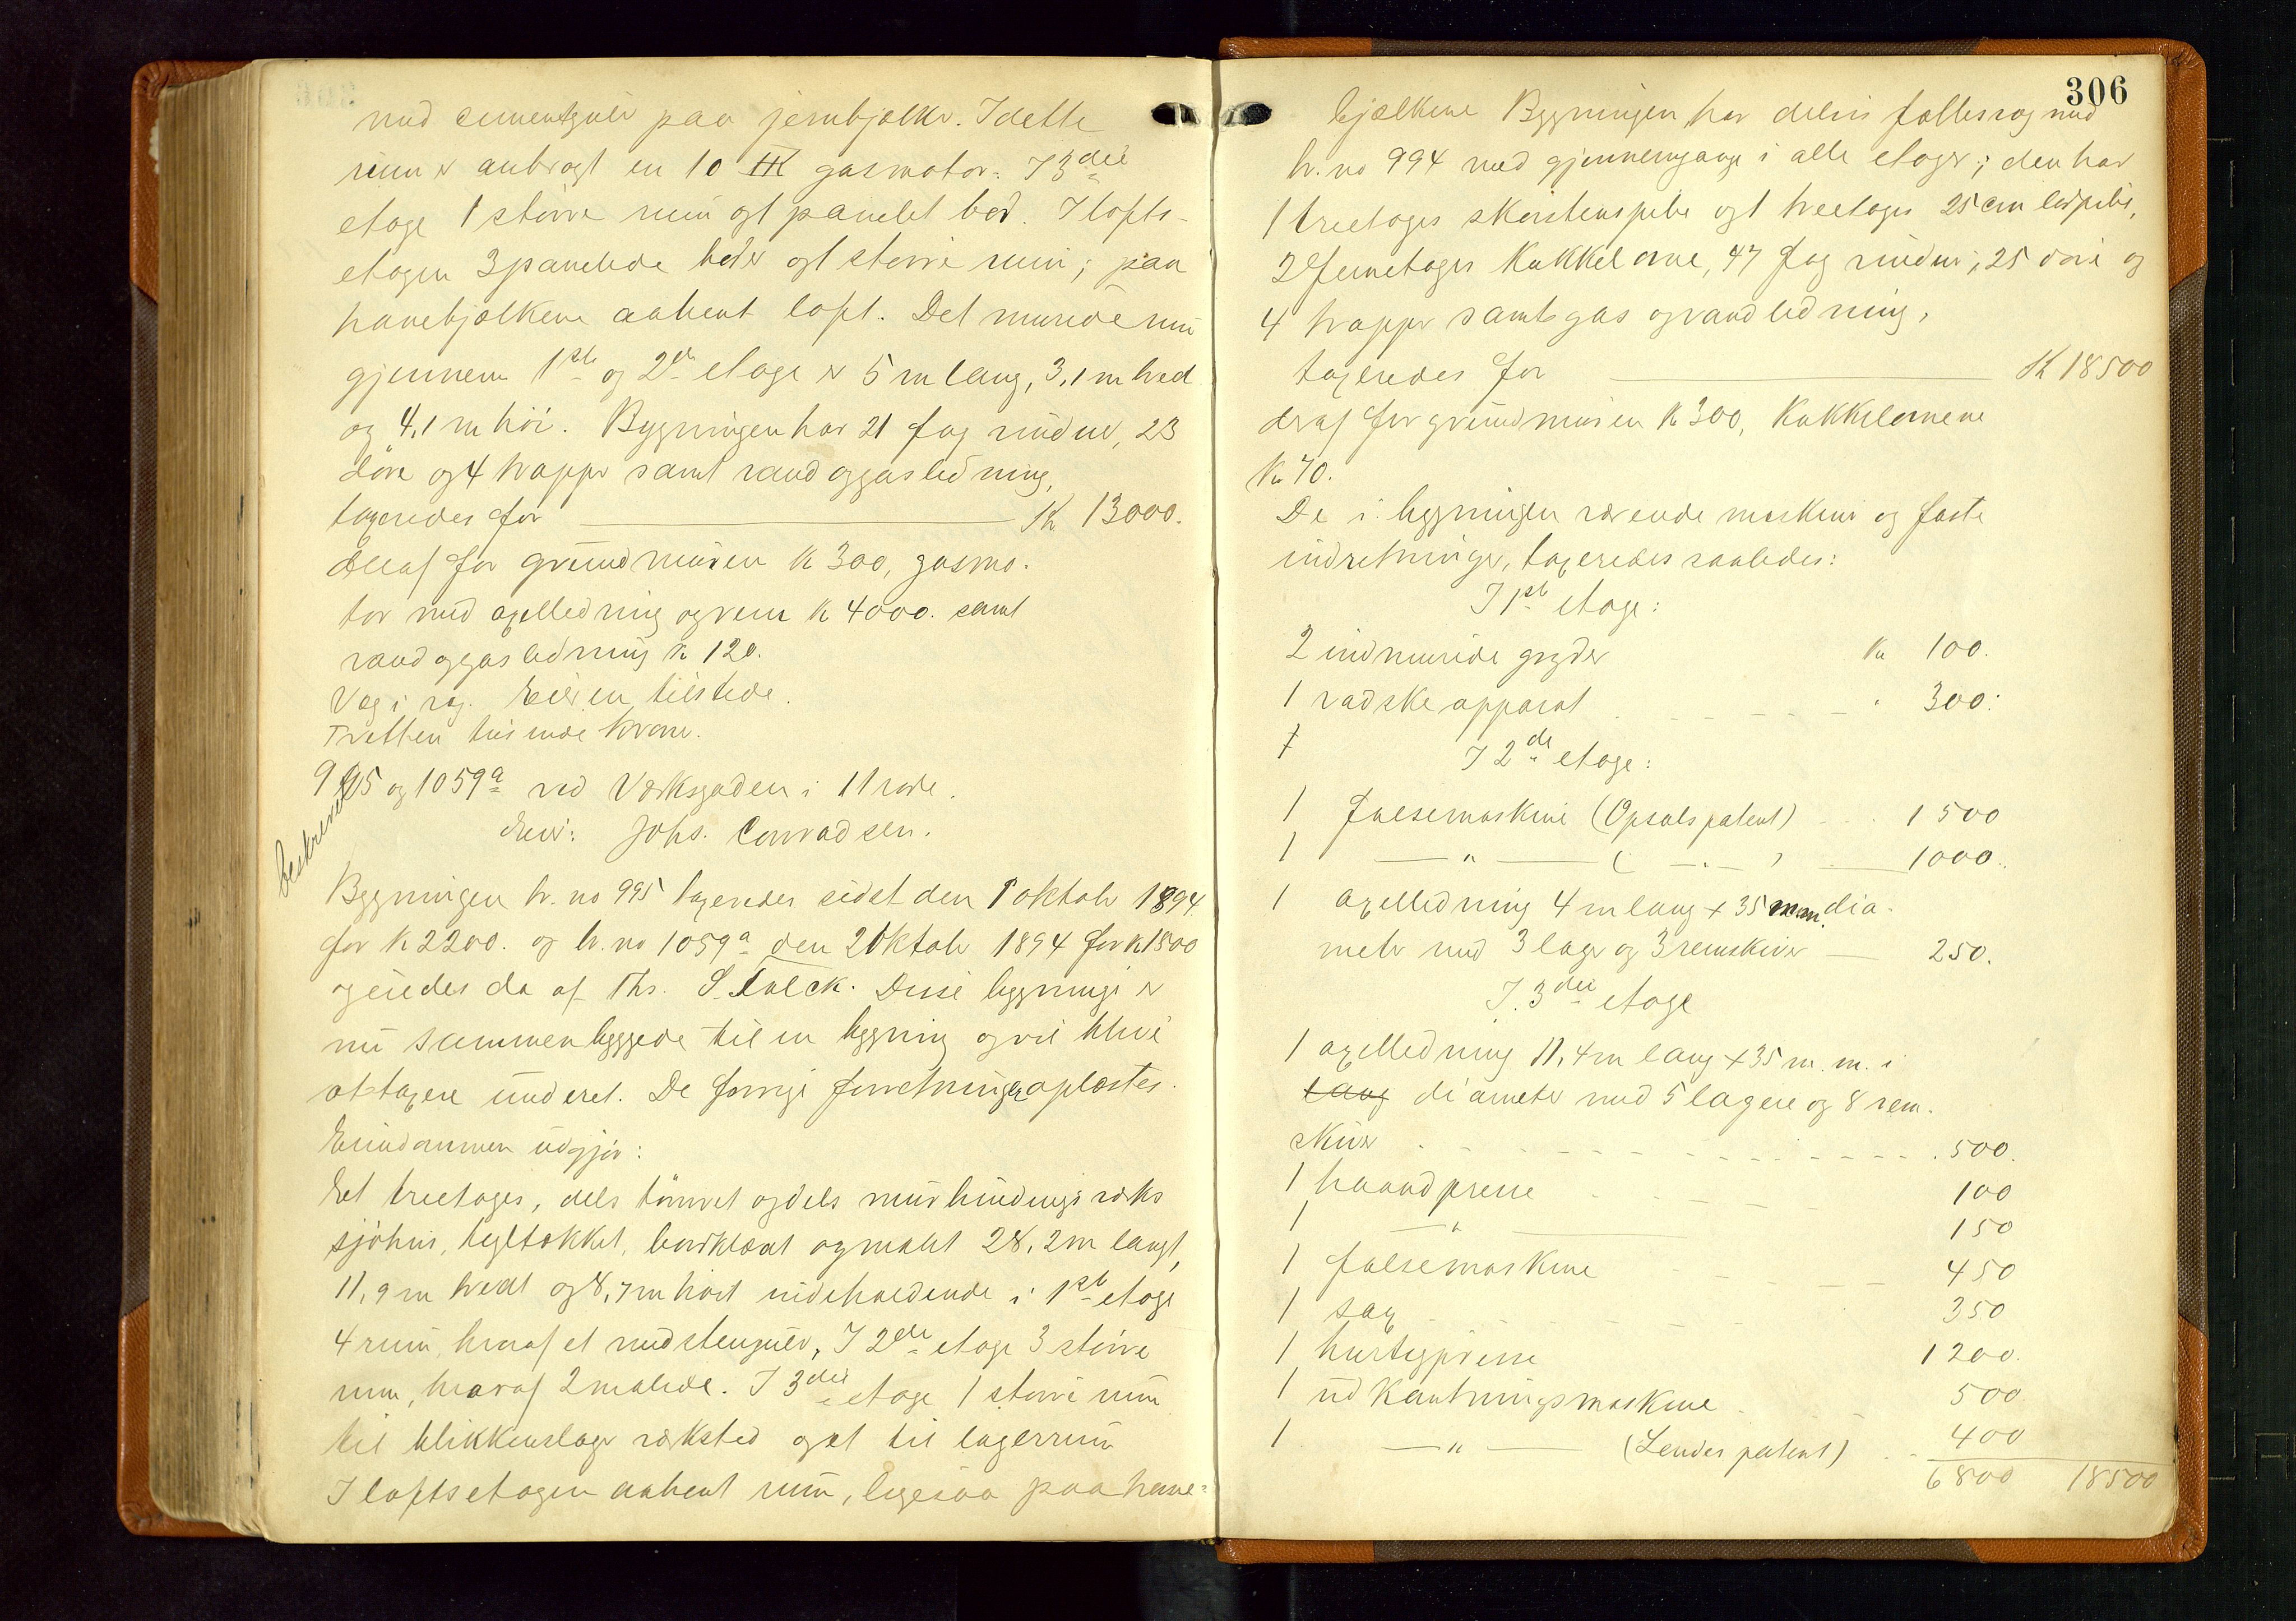 med cementgulv paa jernbjælker. I dette
rum er anbragt en 10 HK gasmotor. I 3die
etage 1 større rum og 1 panelet bod. I lofts-
etagen 3 panelede boder og 1 større rum; paa
hanebjælkene aabent loft. Det murede rum
gjennem 1ste og 2den etage er 5 m lang, 3,1 m bred
og 4,1 m høi. Bygningen har 21 fag vinduer, 23
døre og 4 trapper samt vand og gasledning,
taxeredes for K 13000.
deraf for grundmuren K 300, gasmo-
tor med axelledning og rem K 4000. samt
vand og gasledning K 120.
Væg i væg. Eieren tilstede.
Tretten tusinde kroner.
995 og 1059a ved Værksgaden i 11 rode.
beskreven
Eier: Johs. Conradsen.
Bygningen br. no 995 taxeredes sidst den 1 oktober 1894
for K 2200. og br. no 1059a den 2 Oktober 1894 for K 1500
og eiedes da af Ths. S. Falck. Disse bygninger er
nu sammenbyggede til en bygning og vil blive
at taxere under et. De forrige forretninger oplæstes.
Eiendommen udgjør:
Et treetages, dels tømret og dels murbindings værks
sjøhus, tegltækket, bordklædt og malet 28,2 m langt,
11,9 m bredt og 8,7 m høit indeholdende i 1ste etage
4 rum, hvoraf et med stengulv, I 2den etage 3 større
rum, hvoraf 2 malede. I 3die etage 1 større rum
til blikkenslager værksted og et til lagerrum
I loftsetagen aabent rum, ligesaa paa hane-
306
bjælkene Bygningen har delvis fællesvæg med
br. no 994 med gjennemgange i alle etager; den har
1 treetages skorstenspibe og 1 treetages 25 cm lerpibe,
2 femetages Kakkelovne, 47 fag vinduer, 25 døre og
4 trapper samt gas og vandledning,
taxeredes for K 18500
deraf for grundmuren K 300, Kakkelovnene
K 70.
De i bygningen værende maskiner og faste
indretninger, taxeredes saaledes:
I 1ste etage:
2 indmurede gryder K 100.
1 vadskeapparat " 300.
1 I 2den etage:
1 falsemaskine (Opsals patent) 1500
1 — " — ( — " — ) 1000.
1 axelledning 4 m lang + 35 mm. dia-
meter med 3 lager og 3 remskiver 250.
I. 3die etage
1 axelledning 11,4 m lang + 35 m. m. i
lang diameter med 5 lagere og 8 rem-
skiver 500.
1 haandpresse 100
1 — " — 150
1 falsemaskine 450
1 sax 350
1 hurtigpresse 1200.
1 udkantningsmaskine 500
1 — " — (Lendes patent) 400
6800 18500